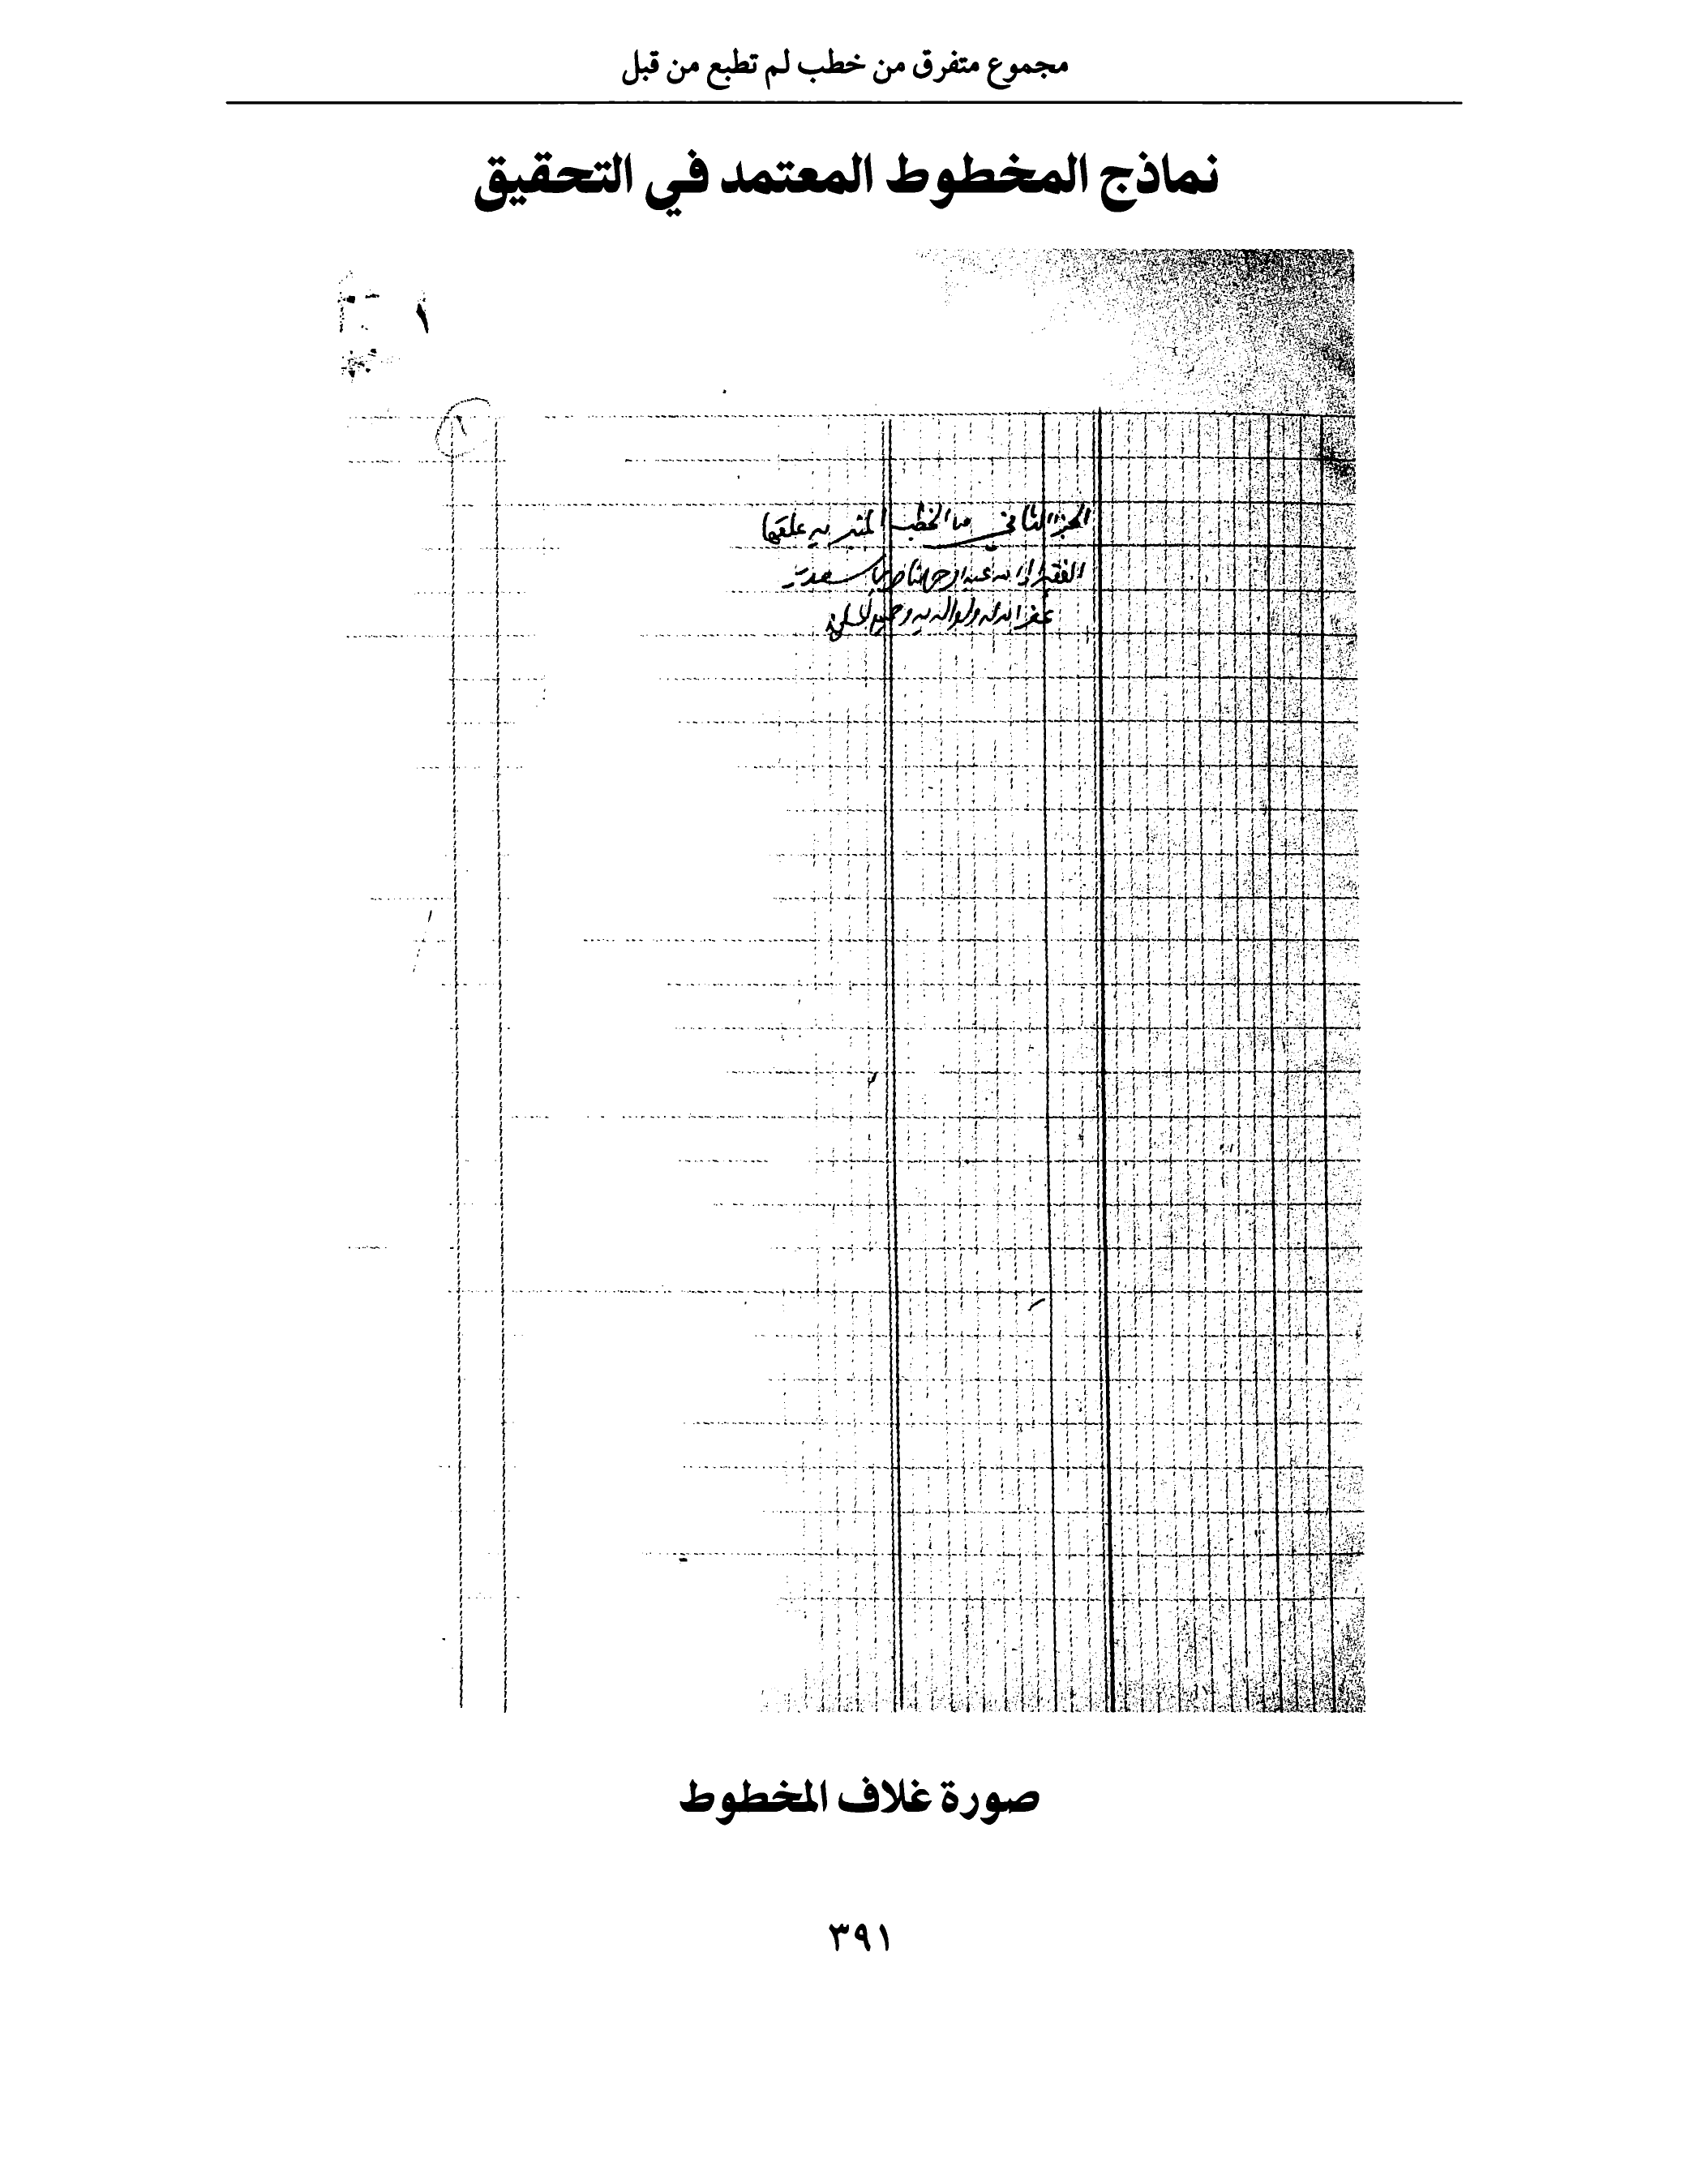 مجموع متفرق من خطب لم تطبع من قبل
نماذج المخطوط المعتمد في التحقيق
١
١
الجزء الثاني من الخطب المنبريه علقها
الفقير إلى الله عبد الرحمن الناصر السعدي
غفر الله له ولوالديه وجميع المسلمين
صورة غلاف المخطوط
٣٩١